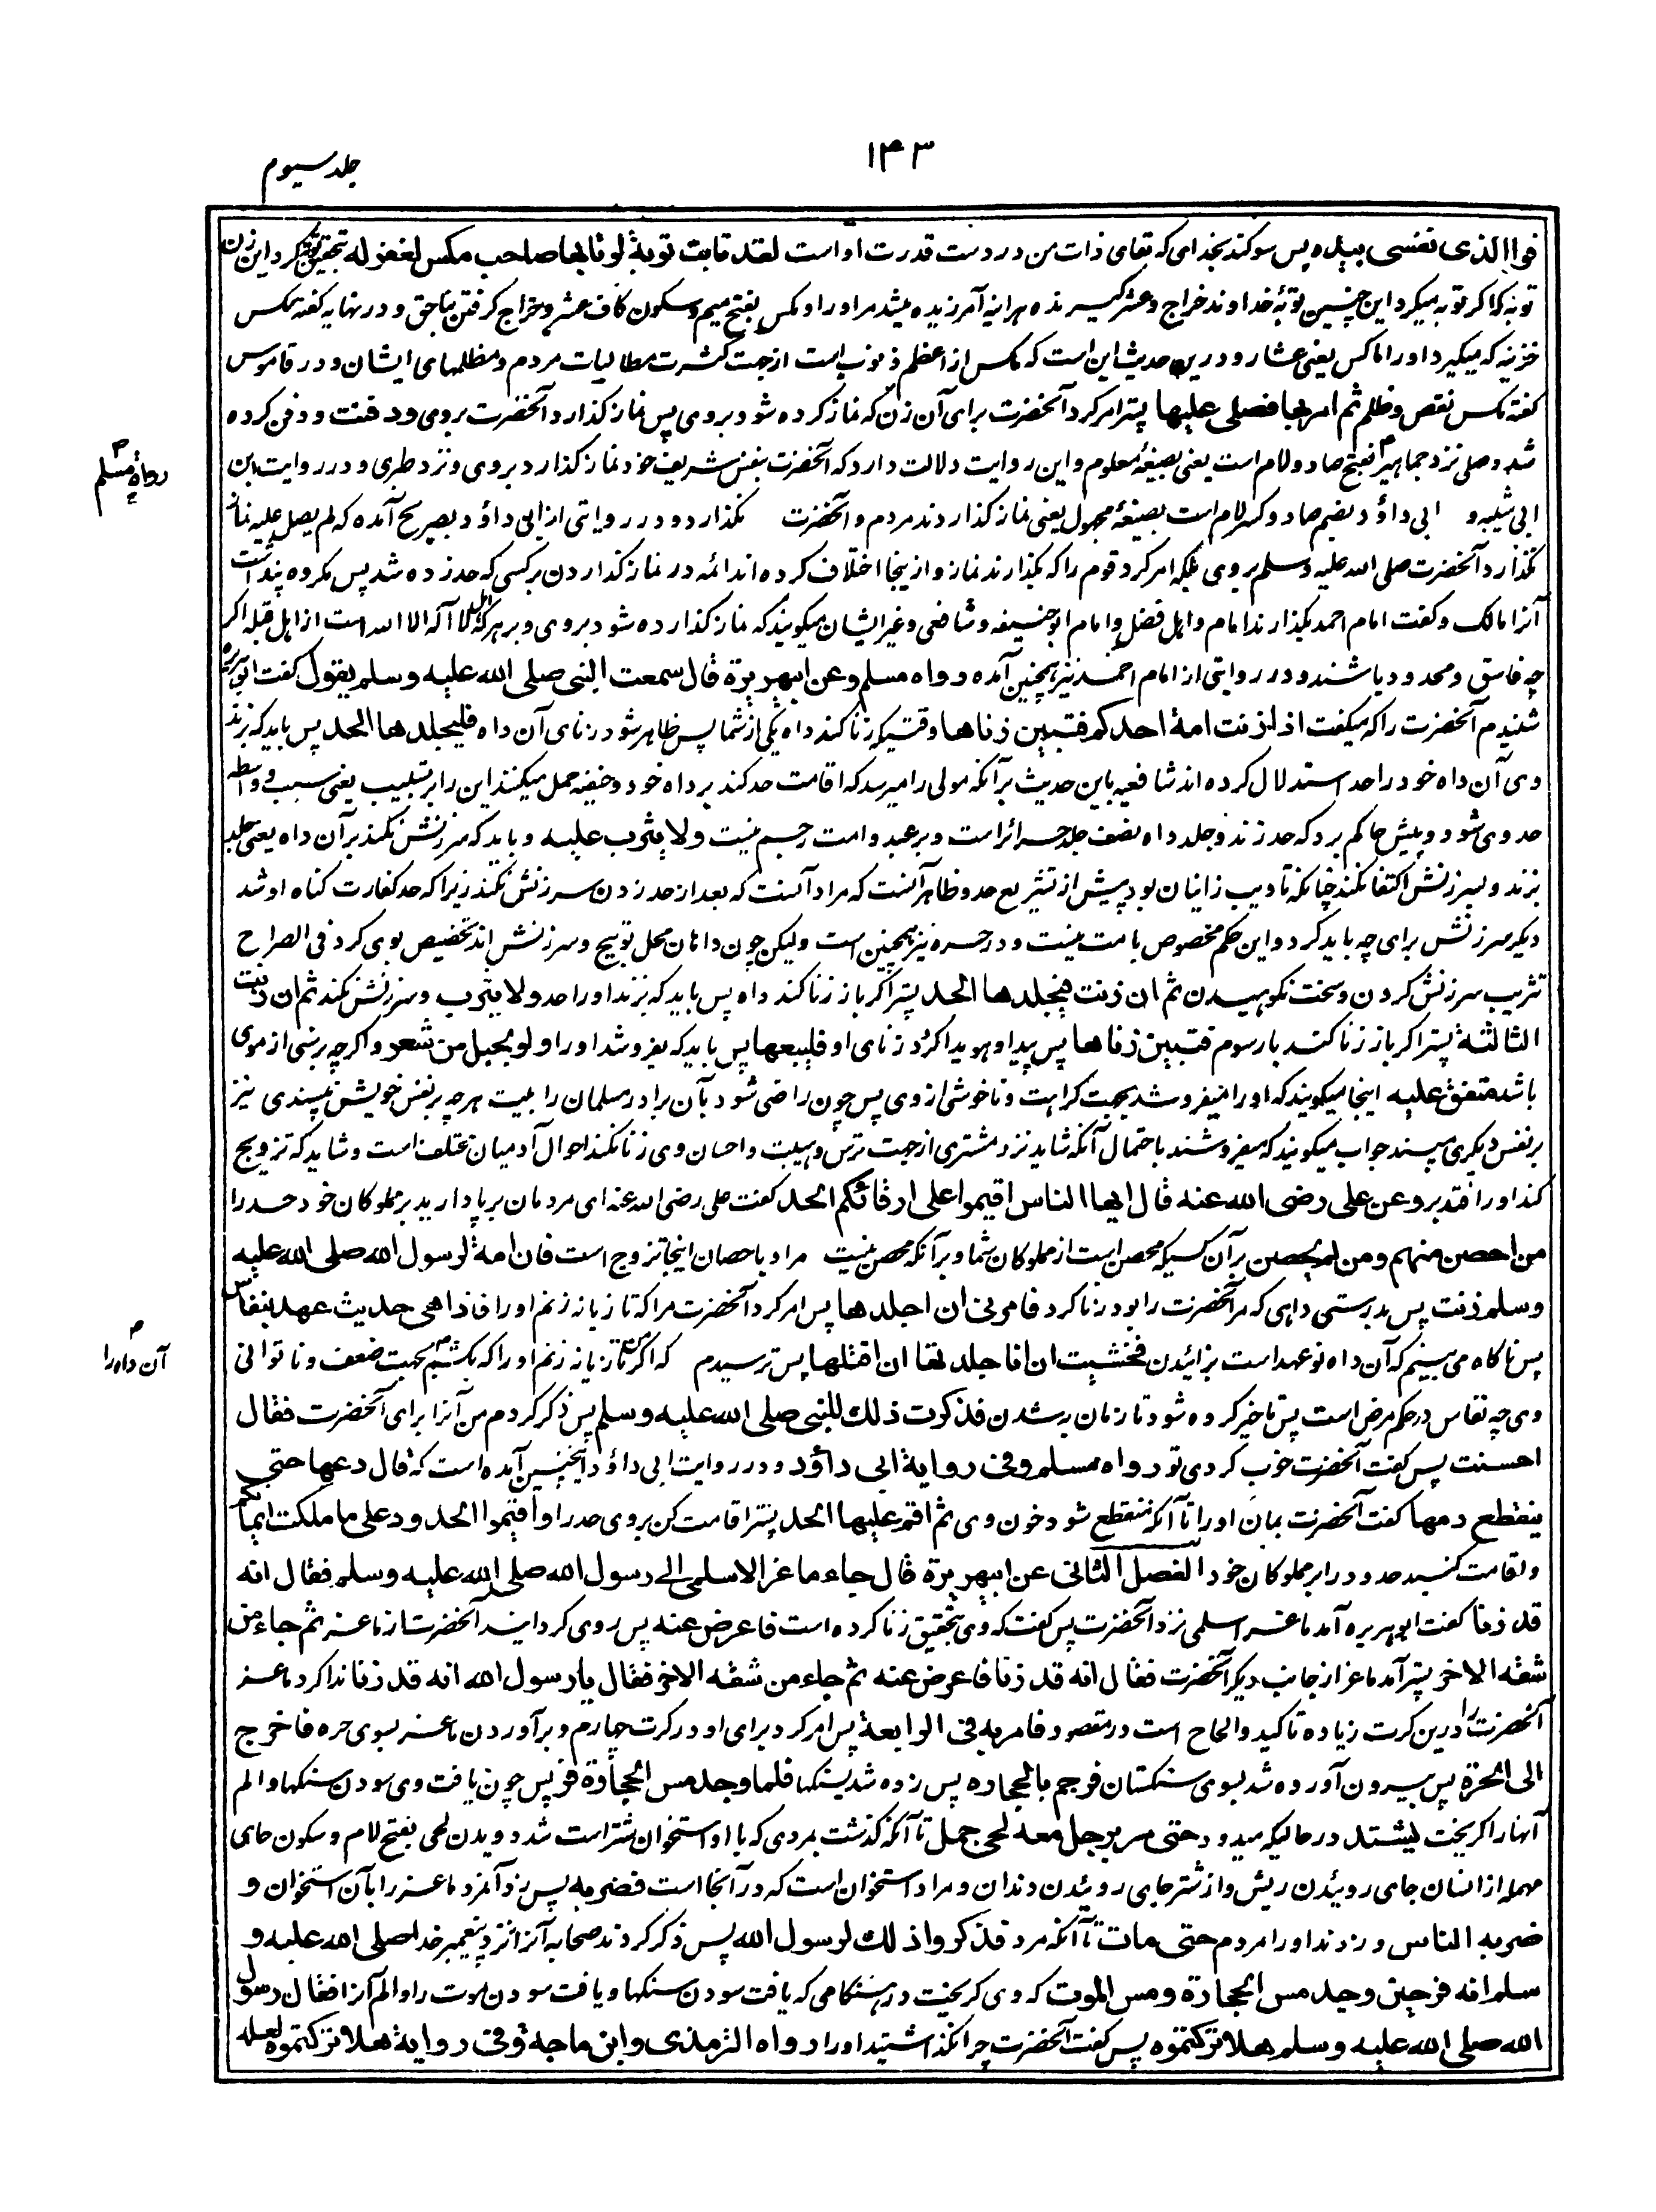 ۱۴۳
جلد سیوم
فوالذی نفسی بیده پس سوکند بخدای که بقای ذات من در دست قدرت اوست لقد تابت توبة لو تابها صاحب مکس لغفر له بتحقیق توبه کرد این زن
توبه که اکر توبه میکرد این چنین توبۀ خداوند خراج و عشر کیرنده هر اینه آمرزیده میشد مر او را و مکس بفتح میم و سکون کاف عشر و خراج کرفتن بناحق و در نهایه کفته مکس
خزینه که میکیرد او را ماکس یعنی عشار و درین حدیث این است که مکس از اعظم ذنوب است از جهت کثرت مطالبات مردم و مظلمهای ایشان و در قاموس
کفته مکس نقص و ظلم ثم امر بها فصلی علیها پستر امر کرد آنحضرت برای آن زن که نماز کرده شود بروی پس نماز کذارد آنحضرت بروی ودفنت و دفن کرده
شد وصلی نزد جماهیر بفتح صاد و لام است یعنی بصیغۀ معلوم و این روایت دلالت دارد که آنحضرت بنفس شریف خود نماز کذارد بروی و نزد طبری و در روایت ابن
ابی شیبه و ابی داؤد بضم صاد و کسر لام است بصیغۀ مجهول یعنی نماز کذاردند مردم و آنحضرت نکذارد و در روایتی از ابی داؤد بصریح آمده که لم یصل علیه نماز
نکذارد آنحضرت صلی الله علیه وسلم بروی بلکه امر کرد قوم را که بکذارند نماز و از ینجا اختلاف کرده اند ائمه در نماز کذاردن بر کسی که حد زده شد پس مکروه پنداشت
آنرا مالک و کفت امام احمد نکذارند امام و اهل فضل و امام ابو حنیفه و شافعی و غیر ایشان میکویند که نماز کذارده شود بروی و بر هر که اهل لا آله الا الله است از اهل قبله اکر
چه فاسق و محدود باشند و در روایتی از امام احمد نیز همچنین آمده رواه مسلم وعن ابیهریرة قال سمعت النبی صلی الله علیه وسلم یقول کفت ابوهریره
شنیدم آنحضرت را که میکفت اذا زنت امة احدکم فتبین زناها وقتیکه زنا کند داه یکی از شما پس ظاهر شود زنای آن داه فلیجلدها الحد پس باید که بزند
وی آن داه خود را حد استدلال کرده اند شافعیه باین حدیث بر آنکه مولی را میرسد که اقامت حد کند بر داه خود و حنفیه حمل میکنند این را بر تسبیب یعنی سبب و واسطه
حد وی شود و پیش حاکم برد که حد زند و جلد داه نصف جلد حرائر است و بر عبد و امت رجم نیست ولا یثرب علیه و باید که سرزنش نکند بر آن داه یعنی جلد
بزند و بسرزنش اکتفا نکند چنانکه تادیب زانیان بود پیش از تشریع حد و ظاهر آنست که مراد آنست که بعد از حد زدن سرزنش نکند زیرا که حد کفارت کناه او شد
دیکر سرزنش برای چه باید کرد و این حکم مخصوص بامت نیست و در حره نیز همچنین است ولیکن چون داهان محل توبیخ و سرزنش اند تخصیص بوی کرد فی الصراح
تثریب سرزنش کردن و سخت نکوهیدن ثم ان زنت فیجلدها الحد پستر اکر باز زنا کند داه پس باید که بزند او را حد ولا یثرب و سرزنش نکند ثم ان زنت
الثالثة پستر اکر باز زنا کند بار سوم فتبین زناها پس پیدا و هویدا کردد زنای او فلیبعها پس باید که بفروشد او را ولو بحبل من شعر و اکرچه برسنی از موی
باشد متفق علیه اینجا میکویند که او را میفروشد بجهت کراهت و ناخوشی از وی پس چون راضی شود بآن برادر مسلمان را بیت هر چه بر نفس خویش نپسندی نیز
بر نفس دیکری مپسند جواب میکویند که میفروشند باحتمال آنکه شاید نزد مشتری از جهت ترس و هیبت و احسان وی زنا نکند احوال آدمیان مختلف است و شاید که تزویج
کند او را فتدبر وعن علی رضی الله عنه قال ایها الناس اقیموا علی ارقائکم الحد کفت علی رضی الله عنه ای مردمان برپا دارید بر مملوکان خود حد را
من احصن منهم ومن لم یحصن بر آن کسیکه محصن است از مملوکان شما و بر آنکه محصن نیست مراد باحصان اینجا تزوج است فان امة لرسول الله صلی الله علیه
وسلم زنت پس بدرستی داهی که مر آنحضرت را بود زنا کرد فامرنی ان اجلدها پس امر کرد آنحضرت مرا که تازیانه زنم او را فاذا هی حدیث عهد بنفاس
پس ناکاه می بینم که آن داه نو عهد است بزائیدن فخشیت ان انا جلدتها ان اقتلها پس ترسیدم که اکر من تازیانه زنم او را که بکشم بجهت ضعف و ناتوانی
وی چه نفاس در حکم مرض است پس تاخیر کرده شود تا زمان به شدن فذکرت ذلک للنبی صلی الله علیه وسلم پس ذکر کردم من آنرا برای آنحضرت فقال
احسنت پس کفت آنحضرت خوب کردی تو رواه مسلم وفی روایة ابی داؤد و در روایت ابی داؤد اینچنین آمده است که قال دعها حتی
ینقطع دمها کفت آنحضرت بمان او را تا آنکه منقطع شود خون وی ثم اقم علیها الحد پستر اقامت کن بر وی حد را و اقیموا الحدود علی ما ملکت ایمانکم
و اقامت کنید حدود را بر مملوکان خود الفصل الثانی عن ابیهریرة قال جاء ماعز الاسلمی الی رسول الله صلی الله علیه وسلم فقال انه
قد زنا کفت ابوهریره آمد ماعز اسلمی نزد آنحضرت پس کفت که وی بتحقیق زنا کرده است فاعرض عنه پس روی کردانید آنحضرت از ماعز ثم جاء من
شقه الاخر پستر آمد ماعز از جانب دیکر آنحضرت فقال انه قد زنا فاعرض عنه ثم جاء من شقه الاخر فقال یا رسول الله انه قد زنا ندا کرد ماعز
آنحضرت را درین کرت زیاده تاکید و الحاح است در مقصود فامر به فی الرابعة پس امر کرد برای او در کرت چهارم و برآوردن ماعز بسوی حره فاخرج
الی الحرة پس بیرون آورده شد بسوی سنکستان فرجم بالحجارة پس زده شد بسنکها فلما وجد مس الحجارة فر پس چون یافت وی سودن سنکها و الم
آنها را کریخت یشتد در حالیکه میدود حتی مر برجل معه لحی جمل تا آنکه کذشت بمردی که با او استخوان شتر است شد دویدن لحی بفتح لام و سکون حای
مهمله از انسان جای روییدن ریش و از شتر جای روییدن دندان و مراد استخوان است که در آنجا است فضربه به پس زد آنمرد ماعز را بآن استخوان و
ضربه الناس و زدند او را مردم حتی مات تا آنکه مرد فذکروا ذلک لرسول الله پس ذکر کردند صحابه آنرا نزد پیغمبر خدا صلی الله علیه و
سلم انه فر حین وجد مس الحجارة ومس الموت که وی کریخت در هنکامی که یافت سودن سنکها و یافت سودن موت را و الم آنرا فقال رسول
الله صلی الله علیه وسلم هلا ترکتموه پس کفت آنحضرت چرا نکذاشتید او را رواه الترمذی وابن ماجة وفی روایة هلا ترکتموه لعله
رواه مسلم
آن داه را